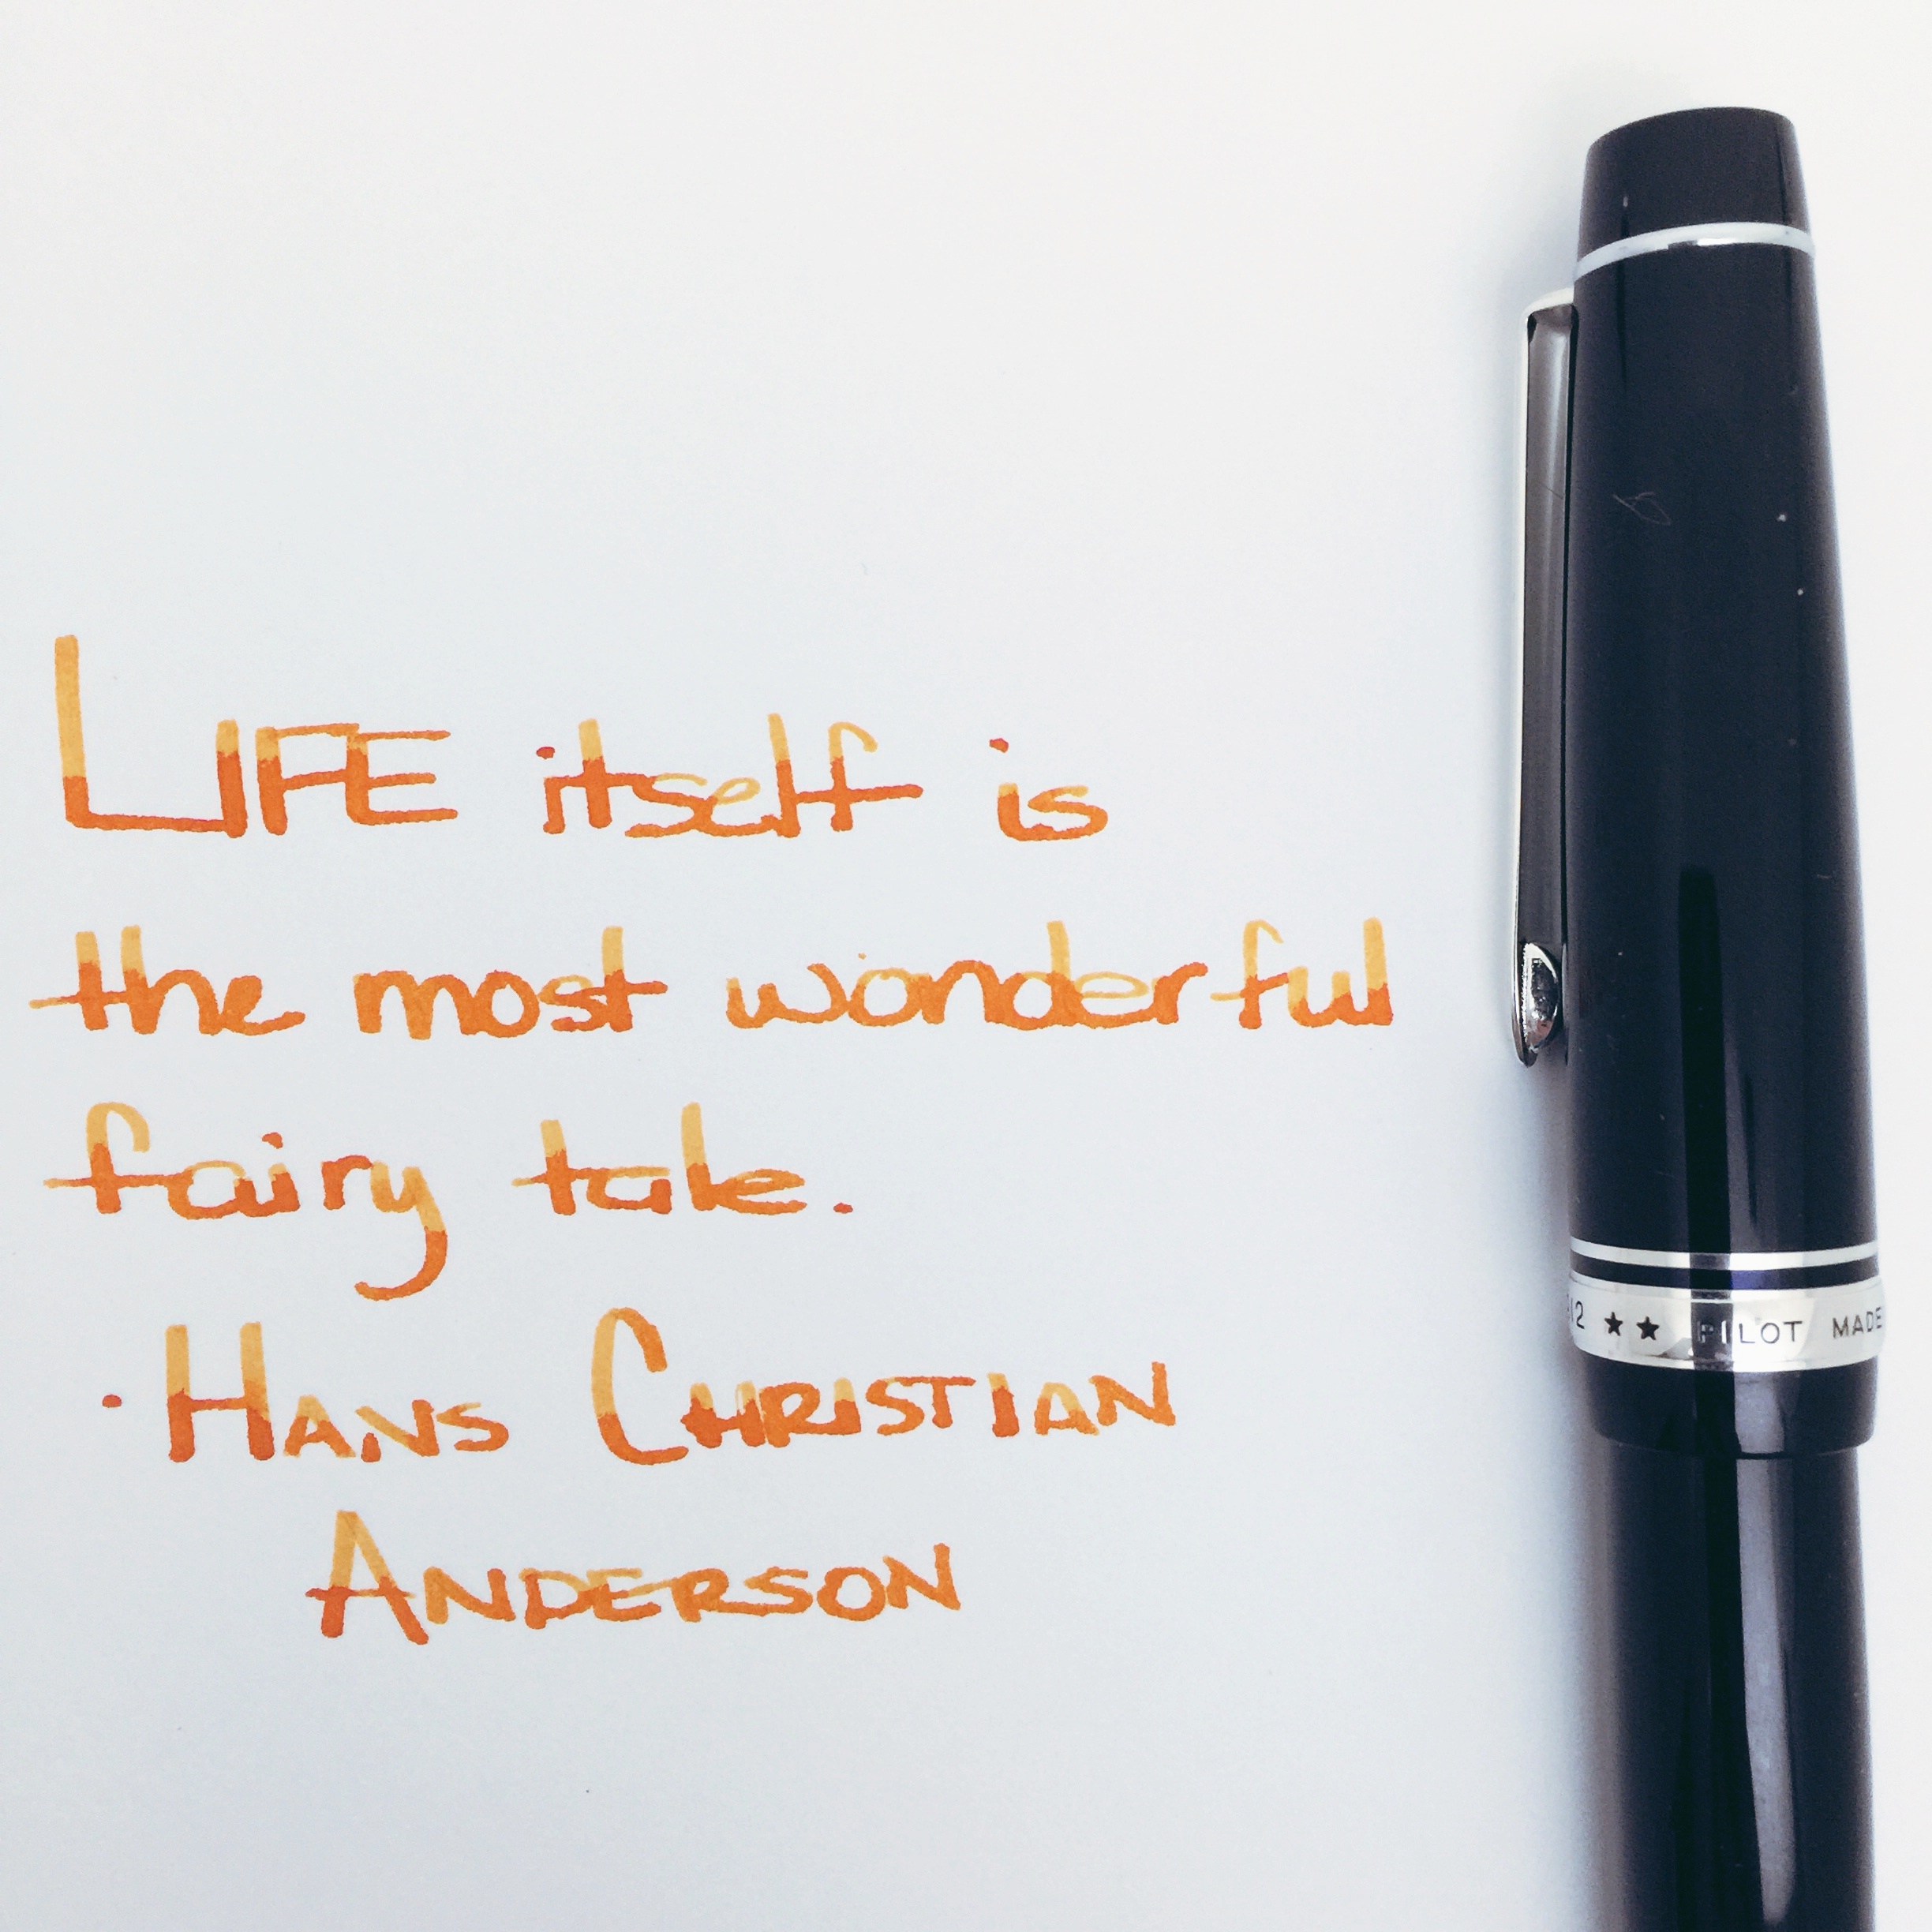 LIFE itself is
the most wonderful
fairy tale.
· HANS CHRISTIAN
ANDERSON
12 ★★ PILOT MADE